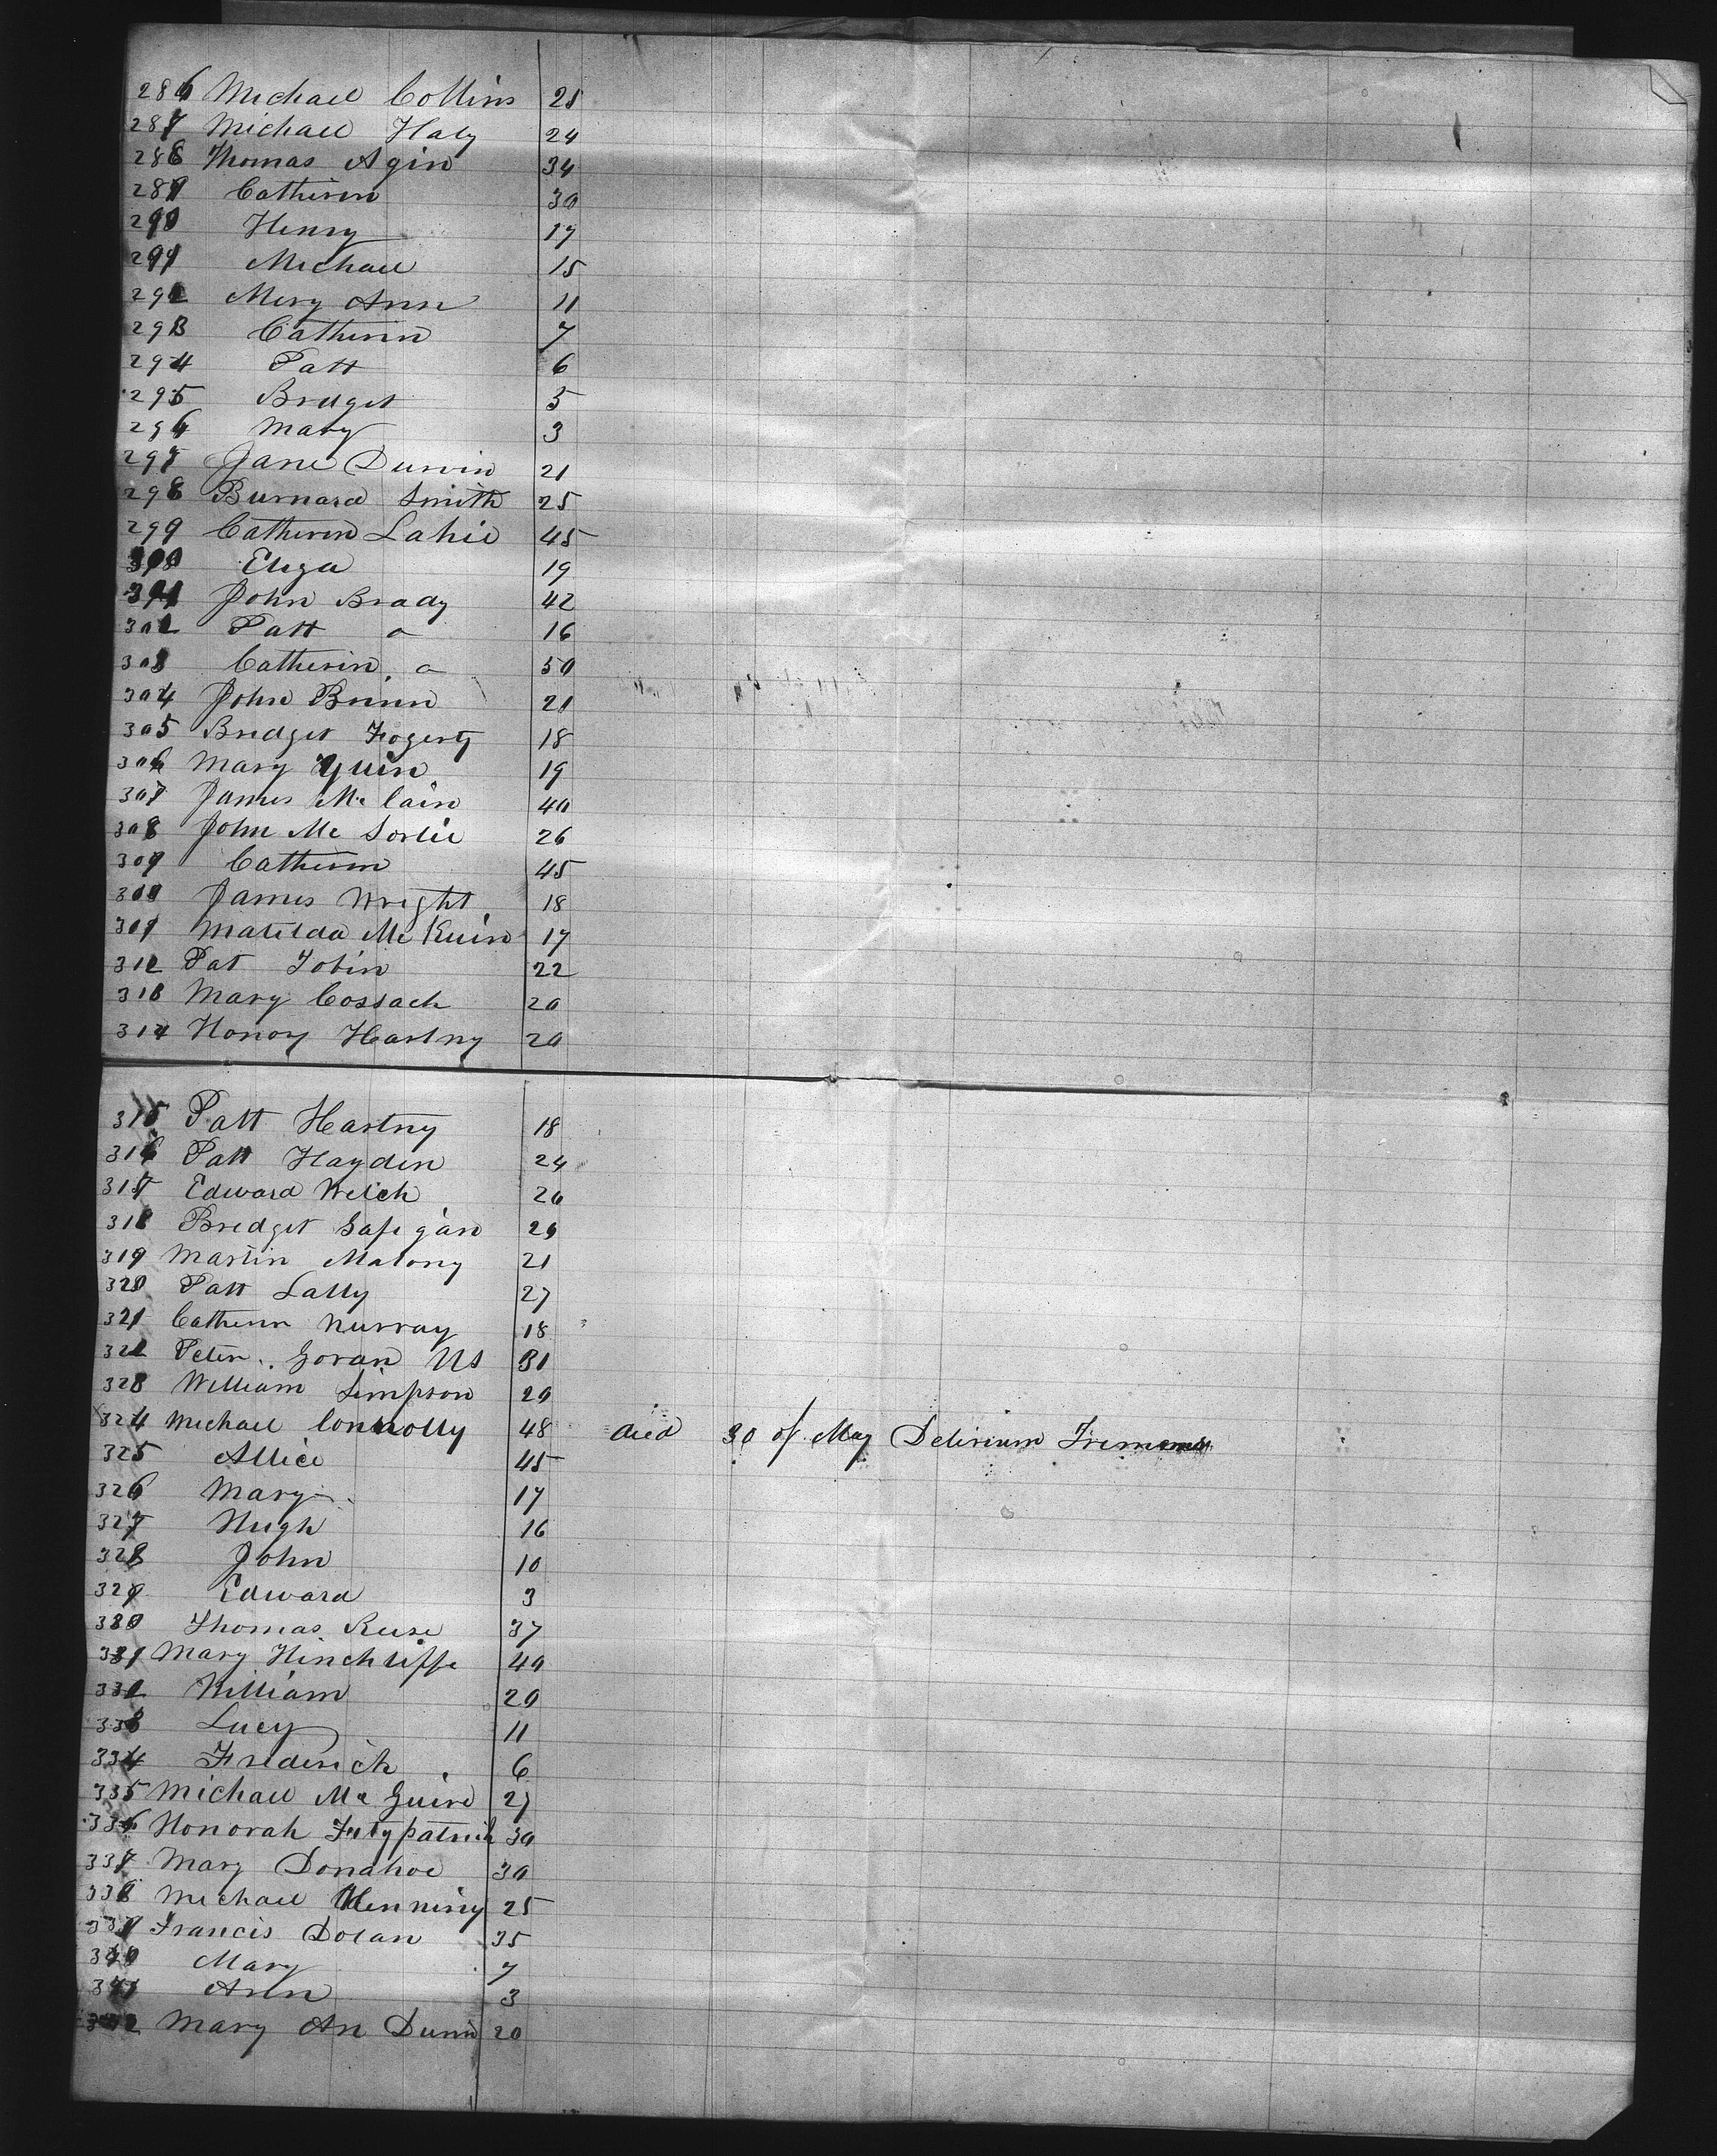 286 Michael Collins 25
287 Michael Haly 24
288 Thomas Agin 34
289 Catherin 30
290 Henry 17
291 Michael 15
292 Mery Ann 11
293 Catherin 7
294 Patt 6
295 Bridget 5
296 Mary 3
297 Jane Durvin 21
298 Burnard Smith 25
299 Catherin Lahie 45
300 Eliza 19
301 John Brady 42
302 Patt o 16
303 Catherin o 50
304 John Brinn 21
305 Bridget Fogerty 18
306 Mary Quin 19
307 James Mc Cain 40
308 John Mc Sorlie 26
309 Catherin 45
310 James Wright 18
311 Matilda Mc Kuin 17
312 Pat Tobin 22
313 Mary Cossack 20
314 Honory Hartny 20
315 Patt Hartny 18
316 Patt Hayden 24
317 Edward Welch 26
318 Bredget 26
319 Martin Malony 21
320 Patt Lally 27
321 Catherin Murray 18
322 Peter Goran US 31
323 William Simpson 20
324 Michael Connolly 48 died 30 of May Delirium
325 Allice 45
326 Mary 17
327 Hugh 16
328 John 10
329 Edward 3
330 Thomas Ruse 37
331 Mary Hinchliffe 40
332 William 20
333 Lucy 11
334 Frederick 6
335 Michael Mc Guire 27
336 Honorah Fitzpatrick 30
337 Mary Donahoe 30
338 Michael Henning 25
339 Francis Dolan 35
340 Mary 7
341 Ann 3
342 Mary An Dunn 20